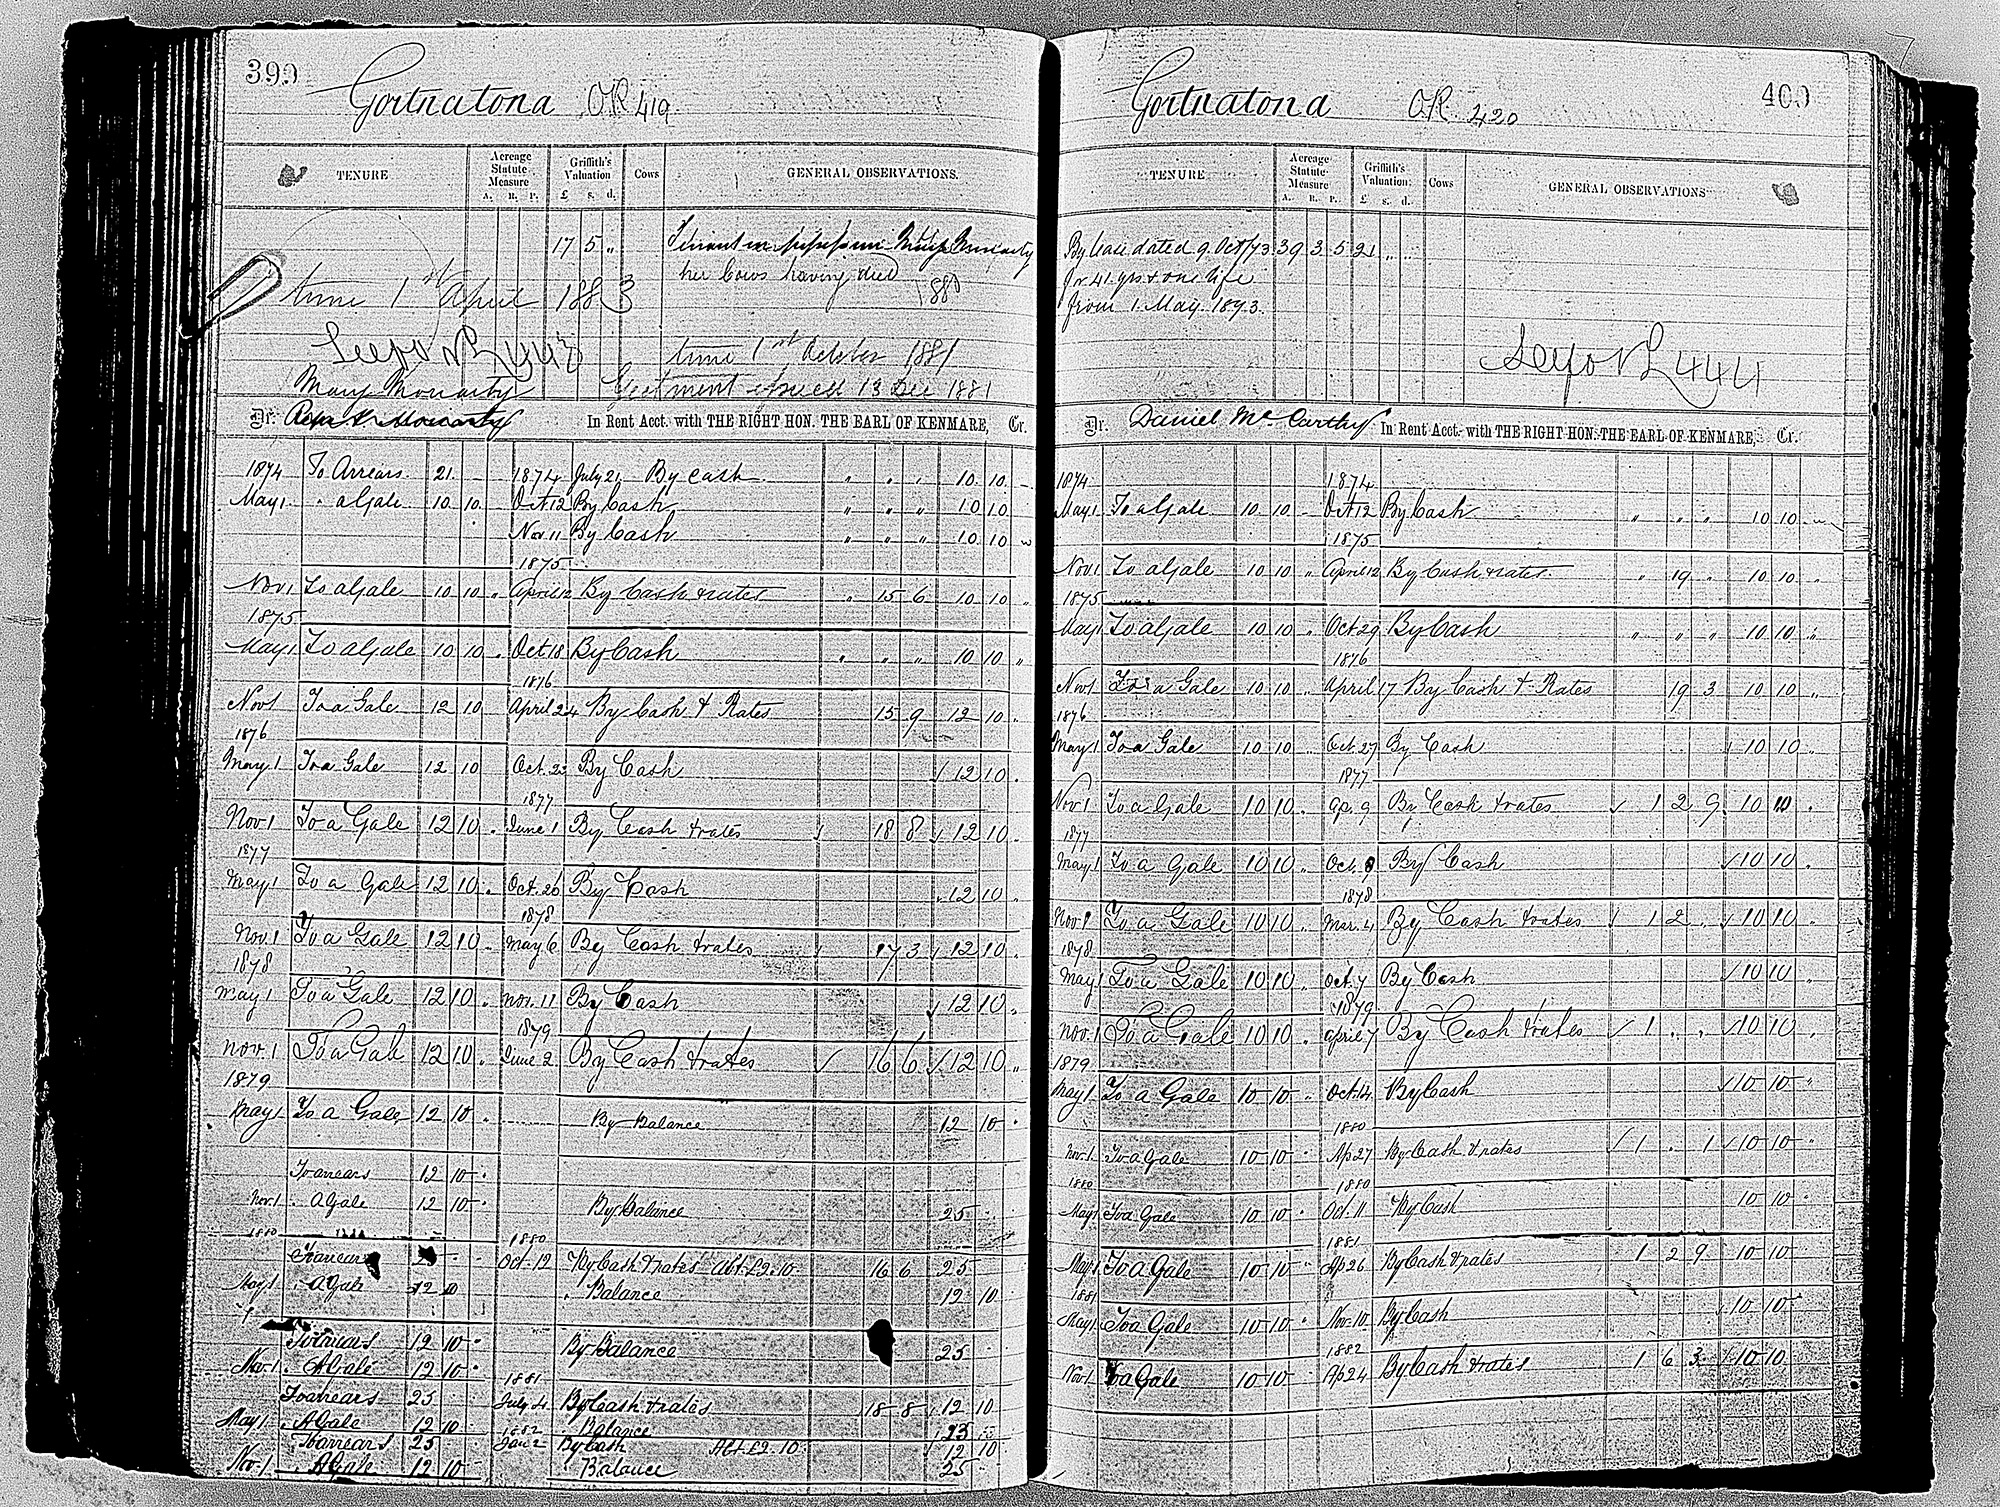 399
Gortnatona OR 419
TENURE
Acreage Statute Measure
A. R. P.
Griffith's Valuation
£ s. d.
Cows
GENERAL OBSERVATIONS.
17 5 "
Tenant in Mary Moriarty
her Cows having died 1880
time 1st April 1883
time 1st October 1881
Ejectment issued 13 Dec 1881
Mary Moriarty
Dr. Moriarty In Rent Acct. with THE RIGHT HON. THE EARL OF KENMARE, Cr.
1874 To Arrears 21 1874 July 21 By Cash " " " 10 10
May 1 " a Gale 10 10 Oct 12 By Cash " " " 10 10
Nov 11 By Cash " " " 10 10 "
1875
Nov 1 To a Gale 10 10 " April 12 By Cash & rates " 15 6 10 10 "
1875
May 1 To a Gale 10 10 " Oct 18 By Cash " " " 10 10 "
1876
Nov 1 To a Gale 12 10 April 24 By Cash & Rates 15 9 12 10 .
1876
May 1 To a Gale 12 10 Oct. 23 By Cash 12 10 .
1877
Nov 1 To a Gale 12 10 . June 1 By Cash & rates 18 8 12 10 .
1877
May 1 To a Gale 12 10 . Oct. 26 By Cash 12 10 .
1878
Nov. 1 To a Gale 12 10 . May 6 By Cash & rates 17 3 12 10 .
1878
May 1 To a Gale 12 10 . Nov. 11 By Cash 12 10 .
1879
Nov. 1 To a Gale 12 10 . June 2 By Cash & rates 16 6 12 10 "
1879
May 1 To a Gale 12 10 . By Balance 12 10 .
To arrears 12 10 .
Nov. 1 . A Gale 12 10 . By Balance 25
1880 1880
To arrears 25 Oct. 12 By Cash & rates Abt. £2.10 16 6 25
May 1 . A Gale 12 10 . Balance 12 10
To arrears 12 10 . By Balance 25
Nov. 1 . A Gale 12 10 .
1881
To arrears 25 July 4 By Cash & rates 18 8 12 10
May 1 . A Gale 12 10 Balance 25
1882
To arrears 25 Jan 2 By Cash Abt. £2.10 12 10
Nov. 1 . A Gale 12 10 Balance 25
400
Gortnatona OR. 420
TENURE
Acreage Statute Measure
A. R. P.
Griffith's Valuation
£ s. d.
Cows
GENERAL OBSERVATIONS
By Lease dated 9 Oct/73 39 3 5 21 " "
for 41 yrs & one life
from 1 May 1873.
444
Dr. Daniel McCarthy In Rent Acct. with THE RIGHT HON. THE EARL OF KENMARE, Cr.
1874 1874
May 1 To a Gale 10 10 Oct 12 By Cash " " " 10 10
1875
Nov 1 To a Gale 10 10 " April 12 By Cash & rates " 19 " 10 10 "
1875
May 1 To a Gale 10 10 " Oct 29 By Cash " " " 10 10 "
1876
Nov 1 To a Gale 10 10 " April 17 By Cash & Rates 19 3 10 10 "
1876
May 1 To a Gale 10 10 " Oct. 27 By Cash 10 10 .
1877
Nov 1 To a Gale 10 10 . Ap. 9 By Cash & rates 1 2 9 10 10 .
1877
May 1 To a Gale 10 10 . Oct. 9 By Cash 10 10 .
1878
Nov. 1 To a Gale 10 10 . Mar. 4 By Cash & rates 1 2 . 10 10 .
1878
May 1 To a Gale 10 10 . Oct. 7 By Cash 10 10
1879
Nov. 1 To a Gale 10 10 . April 7 By Cash & rates 1 . . 10 10 .
1879
May 1 To a Gale 10 10 " Oct. 14 By Cash 10 10 "
1880
Nov. 1 To a Gale 10 10 . Ap 27 By Cash & rates 1 . 1 10 10 "
1880 1880
May 1 To a Gale 10 10 . Oct. 11 By Cash 10 10 .
1881
To a Gale 10 10 " Ap 26 By Cash & rates 1 2 9 10 10
1881
May 1 To a Gale 10 10 . Nov. 10 By Cash 10 10
1882
Nov. 1 To a Gale 10 10 Ap 24 By Cash & rates 1 6 3 10 10